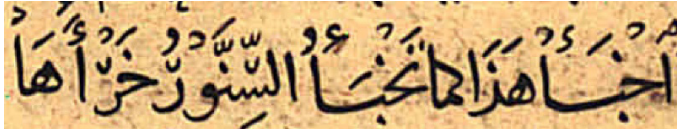 اَخْبَأُ هَذَا كما تَخْبَأُ السِّنَّوْرُ خَرْأَهَا